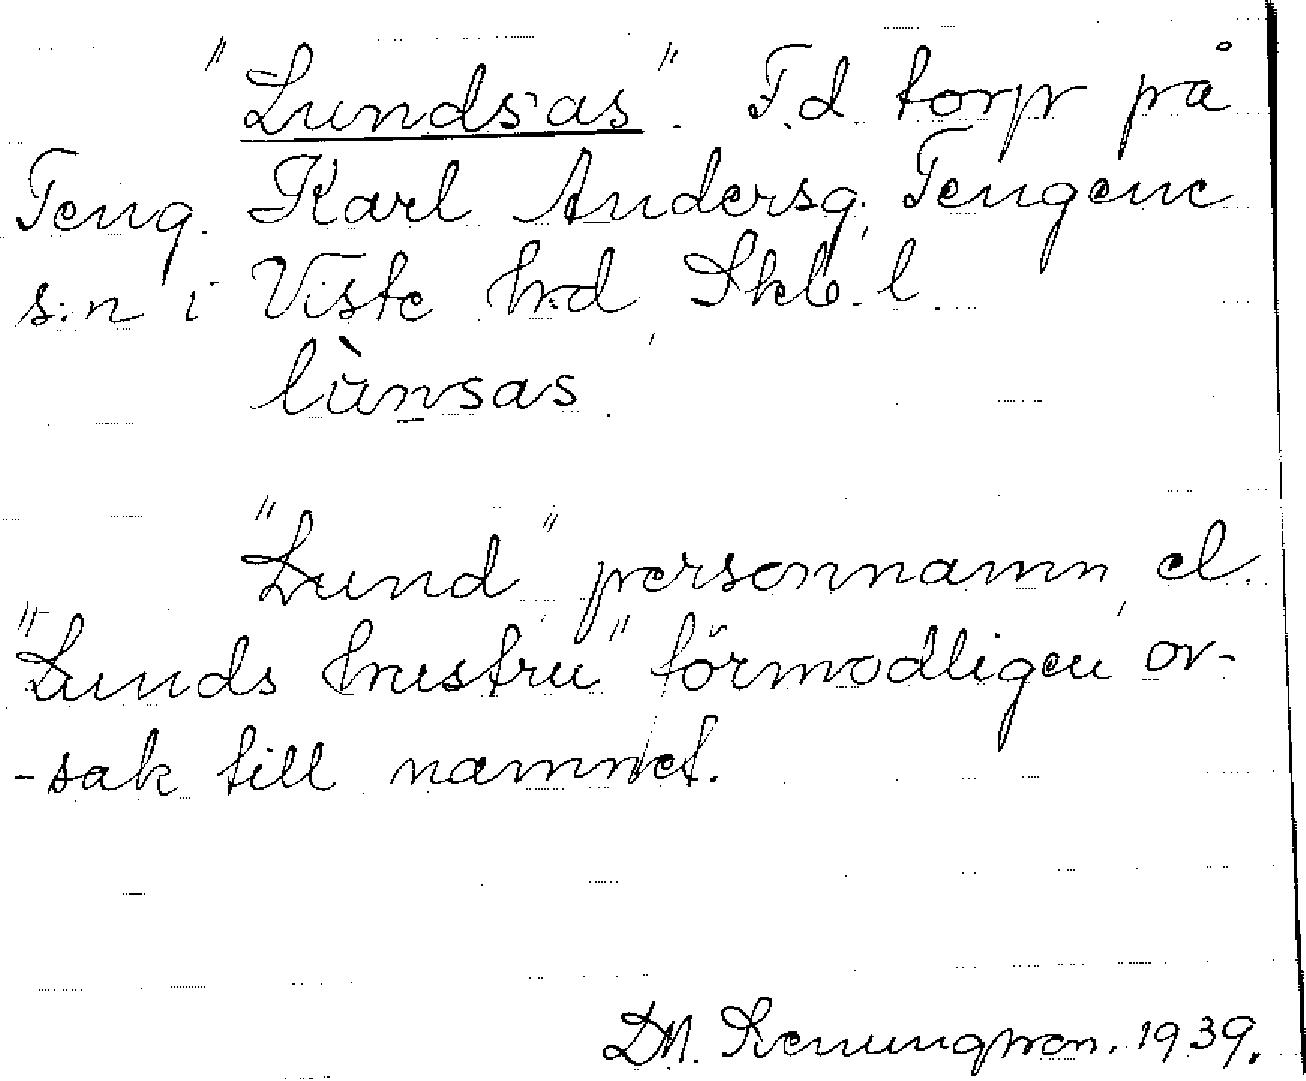 "Lunds-as". F.d torp på
Teng. Karl Andersg. Tengene
s:n i Viste hrd, Skb. l.
lùnsas.
"Lund" personnamn, el.
"Lunds hustru" förmodligen or-
-sak till namnet.
1939.